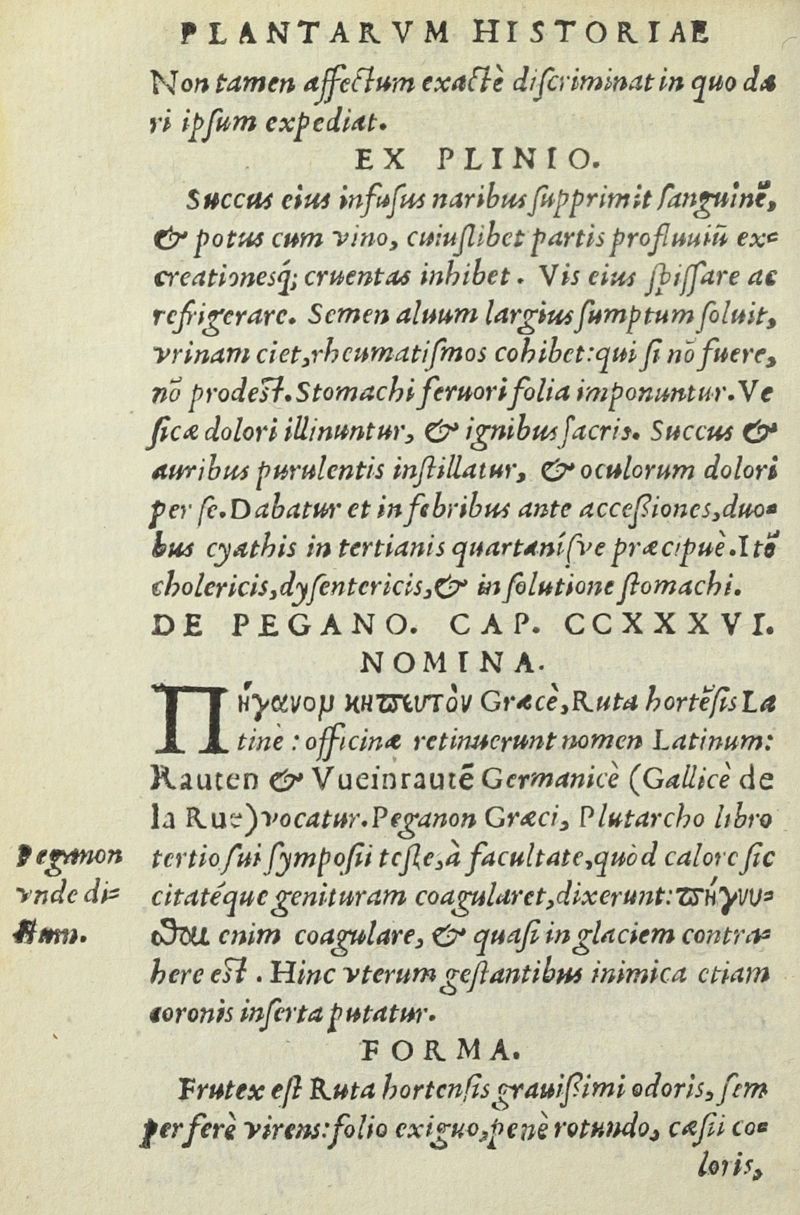 PLANTARVM HISTORIAE
Non tamen affectum exactè diſcriminat in quo da
ri ipſum expediat.
EX PLINIO.
Succus eius infuſus naribus ſupprimit ſanguinẽ,
& potus cum vino, cuiuſlibet partis profluuiũ ex-
creationesq́; cruentas inhibet. Vis eius ſpiſſare ac
refrigerare. Semen aluum largius ſumptum ſoluit,
vrinam ciet, rheumatiſmos cohibet: qui ſi nõ fuere,
nõ prodeſt. Stomachi feruori folia imponuntur. Ve
ſicæ dolori illinuntur, & ignibus ſacris. Succus &
auribus purulentis inſtillatur, & oculorum dolori
per ſe. Dabatur et in febribus ante acceßiones, duo-
bus cyathis in tertianis quartaniſve præcipuè. Itẽ
cholericis, dyſentericis, & in ſolutione ſtomachi.
DE PEGANO. CAP. CCXXXVI.
NOMINA.
Πήγανομ κηπευτὸν Græcè, Ruta hortẽſis La
tinè: officinæ retinuerunt nomen Latinum:
Rauten & Vueinrautẽ Germanicè (Gallicè de
la Rue) vocatur. Peganon Græci, Plutarcho libro
tertio ſui ſympoſii teſte, à facultate, quòd calore ſic
citatéque genituram coagularet, dixerunt: πήγνυ-
Peganon
vnde di-
ctum.
ϑαι enim coagulare, & quaſi in glaciem contra-
here eſt. Hinc vterum geſtantibus inimica etiam
coronis inſerta putatur.
FORMA.
Frutex eſt Ruta hortenſis grauißimi odoris, ſem
per ferè virens: folio exiguo, penè rotundo, cæſii co-
loris,